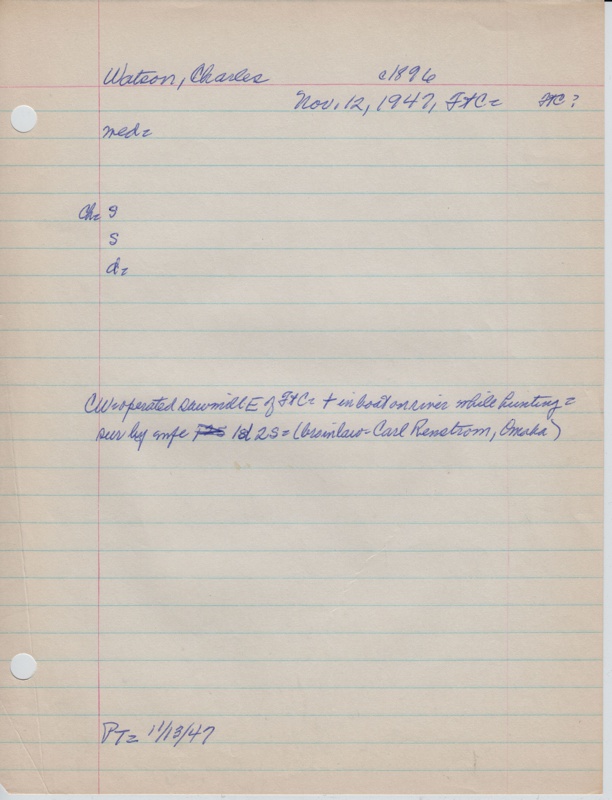 Watson, Charles c1896
Nov. 12, 1947, FtC= FtC?
med=
Ch= 9
S
d=
CW=operated sawmill E of FtC= + in boat on river while hunting=
sur by wife 1d 2S= (brinlaw= Carl Renstrom, Omaha)
PT= 11/13/47